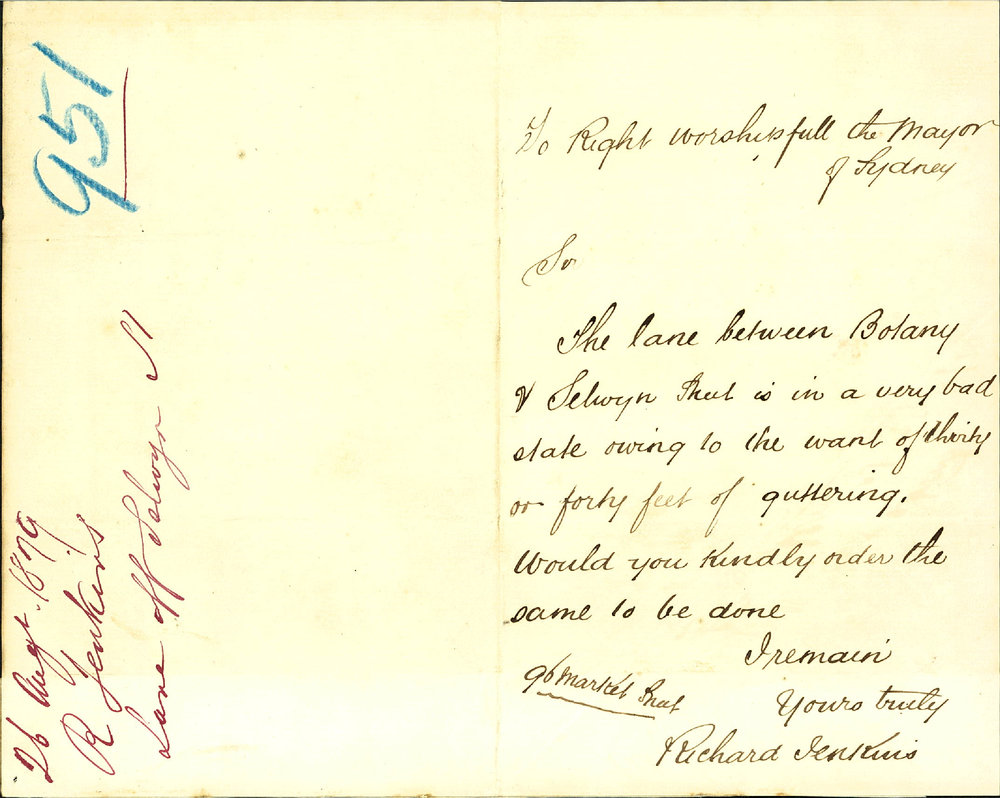 951
26 Augt. 1879
R Jenkins
Lane off Selwyn St
To Right worshipfull the Mayor
of Sydney
Sir
The lane between Botany
& Selwyn Street is in a very bad
state owing to the want of thirty
or forty feet of guttering.
Would you kindly order the
same to be done
I remain
96 Market Street
Yours truly
Richard Jenkins